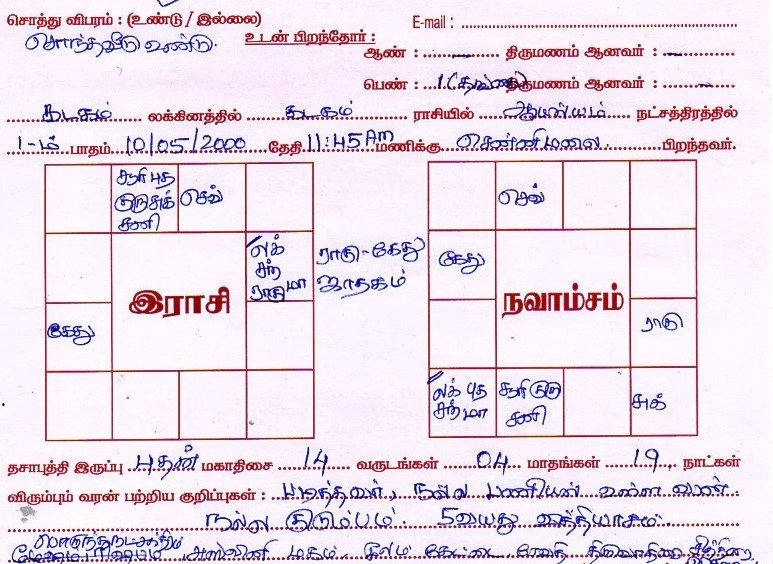 சொத்து விபரம் : (உண்டு / இல்லை) E-mail :
சொந்தவீடு உண்டு. உடன் பிறந்தோர் :
ஆண் : திருமணம் ஆனவர் :
பெண் : 1 திருமணம் ஆனவர் :
கடகம் லக்கினத்தில் கடகம் ராசியில் ஆயில்யம் நட்சத்திரத்தில்
1-ம் பாதம் 10/05/2000 தேதி 11:45 Am மணிக்கு சென்னிமலை பிறந்தவர்.
சூரி புத
குரு சுக் செவ்
சனி
லக்
சந்
ராகு மா
ராகு-கேது
ஜாதகம்
இராசி
கேது
செவ்
கேது
நவாம்சம்
ராகு
லக் புத
சந் மா
சூரி குரு
சனி
சுக்
தசாபுத்தி இருப்பு புதன் மகாதிசை 14 வருடங்கள் 04 மாதங்கள் 19 நாட்கள்
விரும்பும் வரன் பற்றிய குறிப்புகள் : படித்தவர், நல்ல பணியில் உள்ள வரன்.
நல்ல குடும்பம். 5வயது வித்தியாசம்.
அஸ்வினி மகம் கேட்டை ரேவதி திருவாதிரை சித்திரை